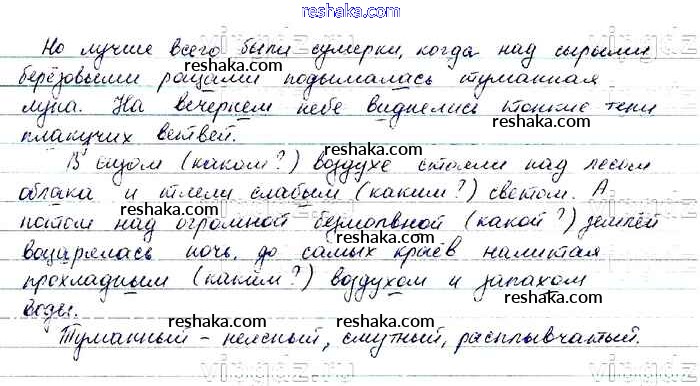 reshaka.com
Но лучше всего были сумерки, когда над сырыми
берёзовыми рощами подымалась туманная
луна. На вечернем небе виднелись тонкие тени
плакучих ветвей.
В сизом (каком?) воздухе стояли над лесом
облака и тлели слабым (каким?) светом. А
потом над огромной безмолвной (какой?) землёй
воцарялась ночь, до самых краёв налитая
прохладным (каким?) воздухом и запахом
воды.
Туманный - неясный, смутный, расплывчатый.
reshaka.com
reshaka.com
reshaka.com
reshaka.com
reshaka.com
reshaka.com
reshaka.com
reshaka.com
reshaka.com
reshaka.com
reshaka.com
reshaka.com